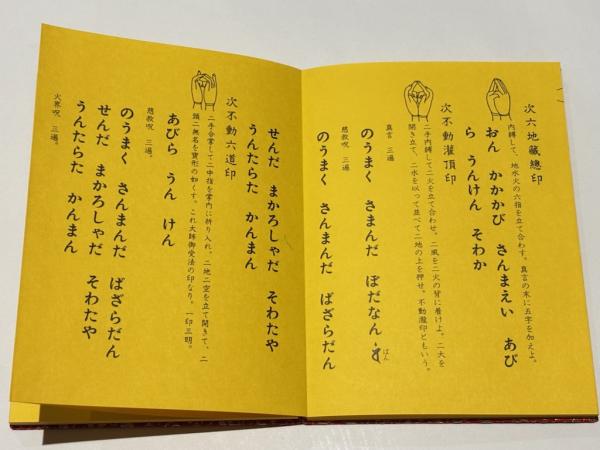 次六地藏總印
内縛して、地水火の六指を立て合わす。真言の末に五字を加えよ。
おん かかかび さんまえい あび
ら うんけん そわか
次不動灌頂印
二手内縛して二火を立て合わせ、二風を二火の背に着けよ。二大を
開き立て、二水を以って並べて二地の上を押せ。不動灑印ともいう。
真言 三遍
のうまく さまんだ ぼだなん
ばん
慈救呪 三遍
のうまく さんまんだ ばざらだん
せんだ まかろしゃだ そわたや
うんたらた かんまん
次不動六道印
二手合掌して二中指を掌内に折り入れ、二地二空を立て開きて、二
頭二無名を寳形の如くす。これ大師御受法の印なり。一印三明。
あびら うん けん
慈救呪 三遍。
のうまく さんまんだ ばざらだん
せんだ まかろしゃだ そわたや
うんたらた かんまん
火界呪 三遍。